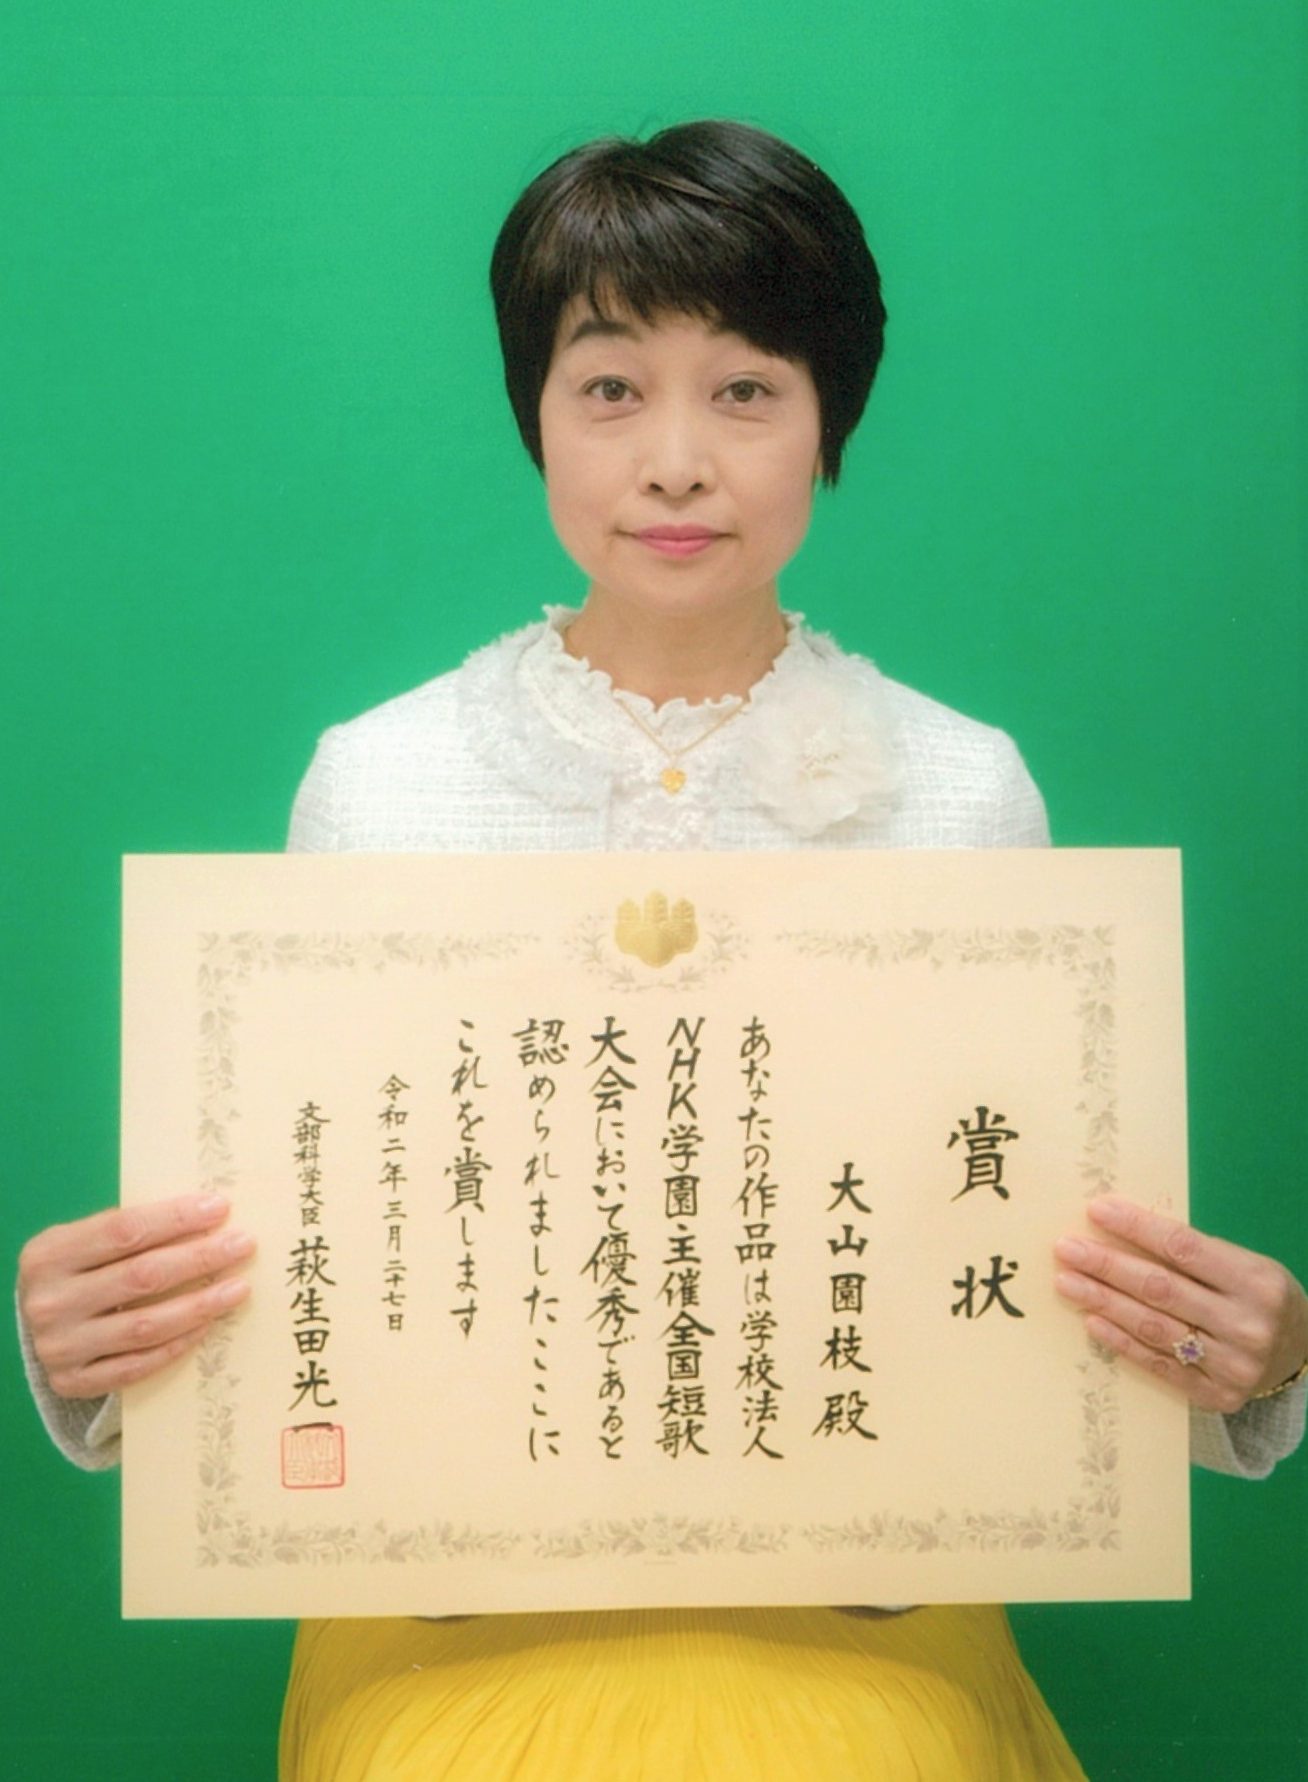 賞状
大山園枝殿
あなたの作品は学校法人
NHK学園主催全国短歌
大会において優秀であると
認められましたここに
これを賞します
令和二年三月二十七日
文部科学大臣 萩生田光一